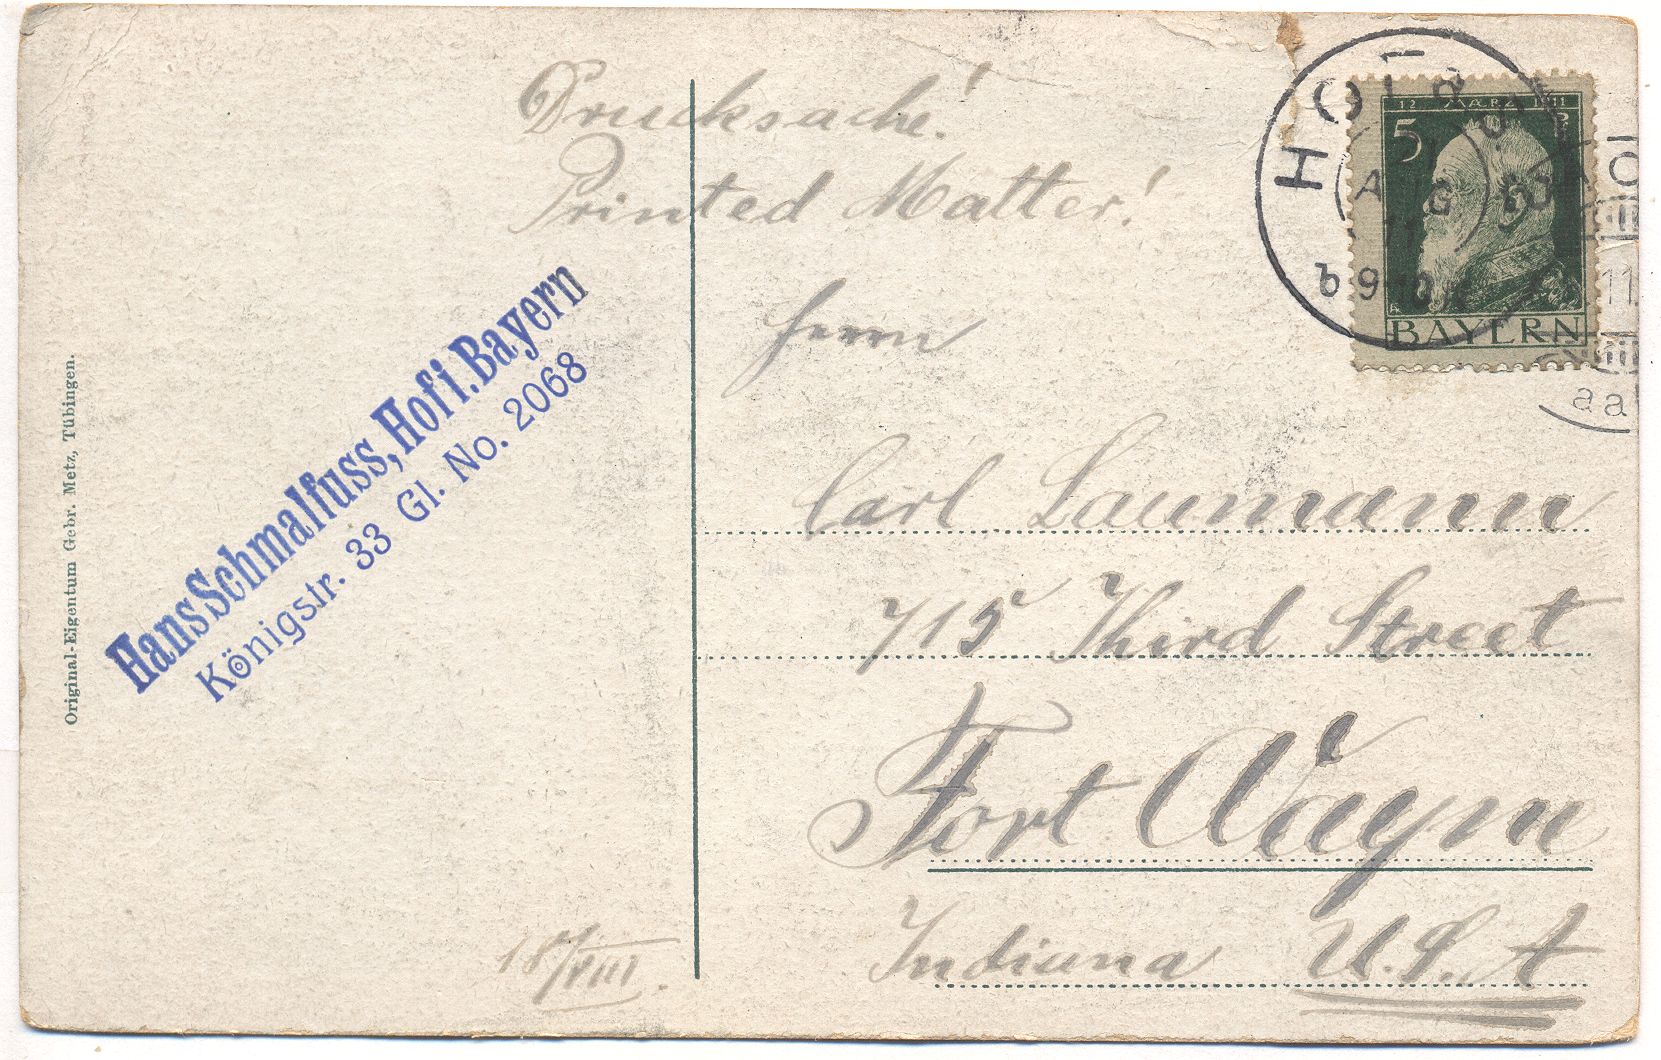 Drucksache!
Printed Matter!
Herrn
Carl Laumann
715 Third Street
Fort Wayne
Indiana U.S.A
18/VIII.
Hans Schmalfuss, Hof i. Bayern
Königstr. 33 Gl. No. 2068
Original-Eigentum Gebr. Metz, Tübingen.
12 MÆRZ 1911
5
BAYERN
HOF
AUG
11
b 9-10